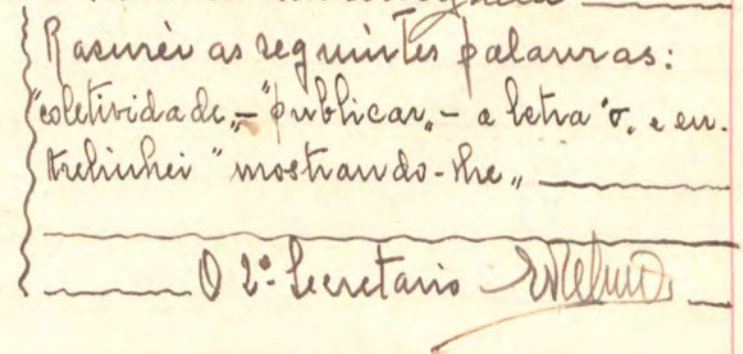 Rasurei as seguintes palavras:
"coletividade„ – "publicar„ – a letra "o„ e en-
trelinhei "mostrando-lhe„
O 2º Secretario